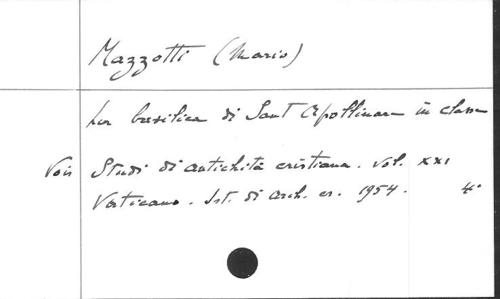 Mazzotti (Mario)
La basilica di Sant Apollinare in classe
Vois Studi di antichità cristiana. Vol. XXI
Vaticano. Ist. di arch. cr. 1954. 4°